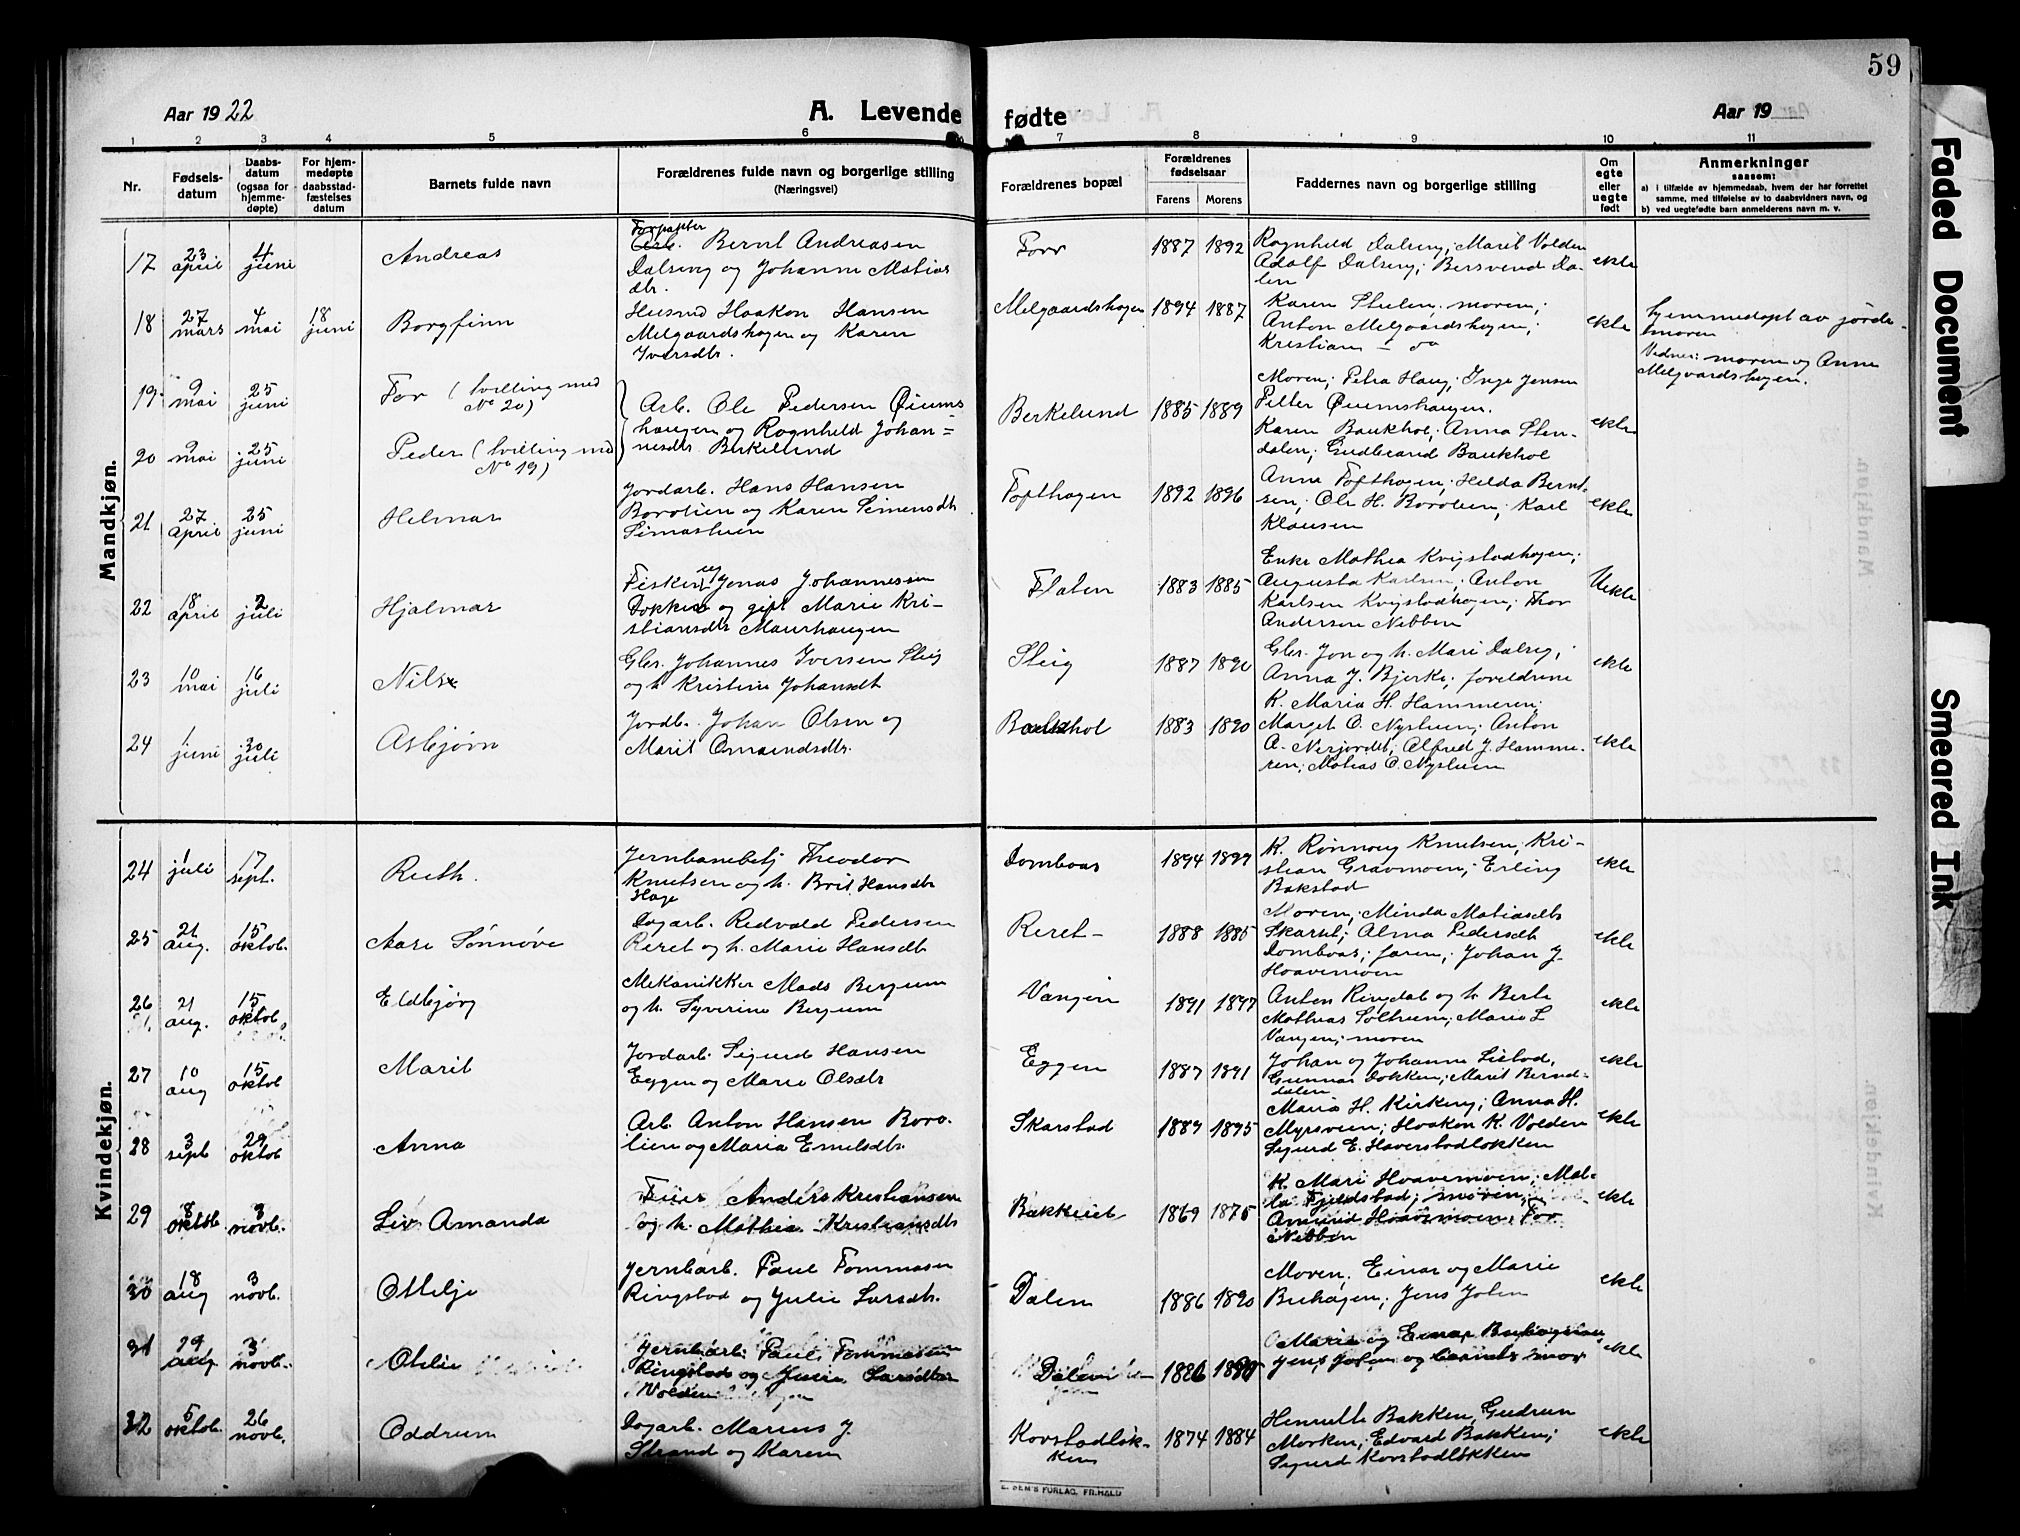 59
Aar 1922
A. Levende
fødte
Aar 19
1 2 3 4 5 6 7 8 9 10 11
Nr.
Fødsels-
datum
Daabs-
datum
(ogsaa for
hjemme-
døpte)
For hjem-
medøpte
daabsstad-
fæstelses
datum
Barnets fulde navn
Forældrenes fulde navn og borgerlige stilling
(Næringsvei)
Forældrenes bopæl
Forældrenes
fødselsaar
Farens Morens
Faddernes navn og borgerlige stilling
Om
egte
eller
uegte
født
Anmerkninger
saasom:
a) i tilfælde av hjemmedaab, hvem der har forrettet
samme, med tilføielse av to daabsvidners navn, og
b) ved uegtefødte barn anmelderens navn m. v.
Mandkjøn.
17 23 april 4 juni Andreas
Forpakter
Arb. Bernt Andreasen
Dalseng og Johanne Matias
dtr.
Torr 1887 1892
Ragnhild Dalseng; Marit Volden
Adolf Dalseng; Bersvend Da-
len
ekte
18 27 mars 4 mai 18 juni Borgfinn
Husmd Haakon Hansen
Melgaardshagen og Karen
Iversdtr.
Melgaardshagen 1894 1887
Karen Stulen; moren;
Anton Melgaardshagen;
Kristian - do
ekte
hjemmedøpt av jorde-
moren
Vidner: moren og Anne
Melgaardshagen.
19 9 mai 25 juni Tor (tvilling med
No 20)
20 9 mai 25 juni Peder (tvilling med
No 19)
Arb. Ole Pedersen Øiums-
haugen og Ragnhild Johan=
nesdtr Birkelund
Berkelund 1885 1889
Moren; Petra Haug; Inge Jensen
Petter Øiumshaugen.
Karen Baukhol; Anna Sten-
dalen; Gudbrand Baukhol
ekte
21 27 april 25 juni Helmar
Jordarb. Hans Hansen
Borolien og Karen Simensdtr
Simastuen
Tofthagen 1892 1896
Anne Tofthagen; Hilda Bernt-
sen; Ole H. Borolien; Karl
Klausen
ekte
22 18 april 2 juli Hjalmar
Fisker Jonas Johannessen
Dokken og gift Marie Kri-
stiansdtr Maurhaugen
Flaten 1883 1885
Enke Mathea Kvigstadhagen;
Augusta Karlsen; Anton
Karlsen Kvigstadhagen; Thor
Andersen Nebben
Uekte
23 10 mai 16 juli Nils
Gbr. Johannes Iversen Steig
og h. Kristine Johansdt
Steig 1887 1890
Gbr. Jon og h. Mari Dalseg;
Anna J. Bjerke; foreldrene
ekte
24 1 juni 30 juli Asbjørn
Jordb. Johan Olsen og
Marit Amundsdtr.
Baukhol 1883 1890
K. Maria H. Hammeren;
Marget O. Nystuen; Anton
A. Nesjordet; Alfred J. Hamme-
ren; Matias O. Nystuen
ekte
Kvindekjøn.
24 1 juli 17 sept. Ruth.
Jernbanebetj Theodor
Knutsen og h. Brit Hansdtr
Hage
Dombaas 1894 1899
K. Rønnoug Knutsen; Kri-
stian Gravmoen; Erling
Bakstad
ekte
25 21 aug. 15 oktob. Aase Sønnøve
Dagarb. Redvald Pedersen
Reret og h. Marie Hansdt
Reret 1888 1885
Moren; Minda Matiasdtr
Skaret; Alma Pedersdt
Dombaas; faren; Johan J.
Hoavemoen
ekte
26 21 aug. 15 oktob. Eldbjørg
Mekanikker Mads Bergum
og h. Syverine Bergum
Vangen 1891 1897
Anton Ringdal og h. Berte
Mathias Solheim; Marie L
Vangen; moren
ekte
27 10 aug 15 oktob Marit
Jordarb. Sigurd Hansen
Eggen og Marie Olsdtr
Eggen 1887 1891
Johan og Johanne Listad;
Gunnar Dokken; Marit Bernd-
dalen
ekte
28 3 sept 29 oktob Anna
Arb. Anton Hansen Boro-
lien og Maria Emilsdtr.
Skarstad 1889 1895
Maria H. Kirkeng; Anna H.
Myrsveen; Haakon K. Volden
Sigurd E. Haverstadløkken
ekte
29 8 oktob. 3 novb. Liv Amanda
Anders Kristiansen
og h. Mathea Kristiansdtr
Bakkeiet 1869 1875
K. Mari Hoavemoen; Mat-
Fjeldstad; moren;
Amund Hoavemoen; Tor
Nebben
ekte
30 18 aug 3 novb. Ottelje
Jernbarb. Paul Tommasen
Ringstad og Julie Larsdtr.
Dalen 1886 1890
Moren; Einar og Marie
Buhagen; Jens Jolen
ekte
31 29 aug. 3 novb. Otelie
Jernbarb. Paul Tommasen
Ringstad og Julie Larsdtr
Volden
Dalen 1886 1890
Marie og Einar Buhagen
Jens Jolen og barnets mor
ekte
32 5 oktob. 26 novb. Oddrun
Dagarb. Marius J.
Strand og Karen
Korstadløk-
ken 1874 1884
Henrette Bakken; Gudrun
Morken; Edvard Bakken;
Sigurd Korstadløkken
ekte
E. SEM'S FORLAG, FR.HALD
Faded Document
Smeared Ink